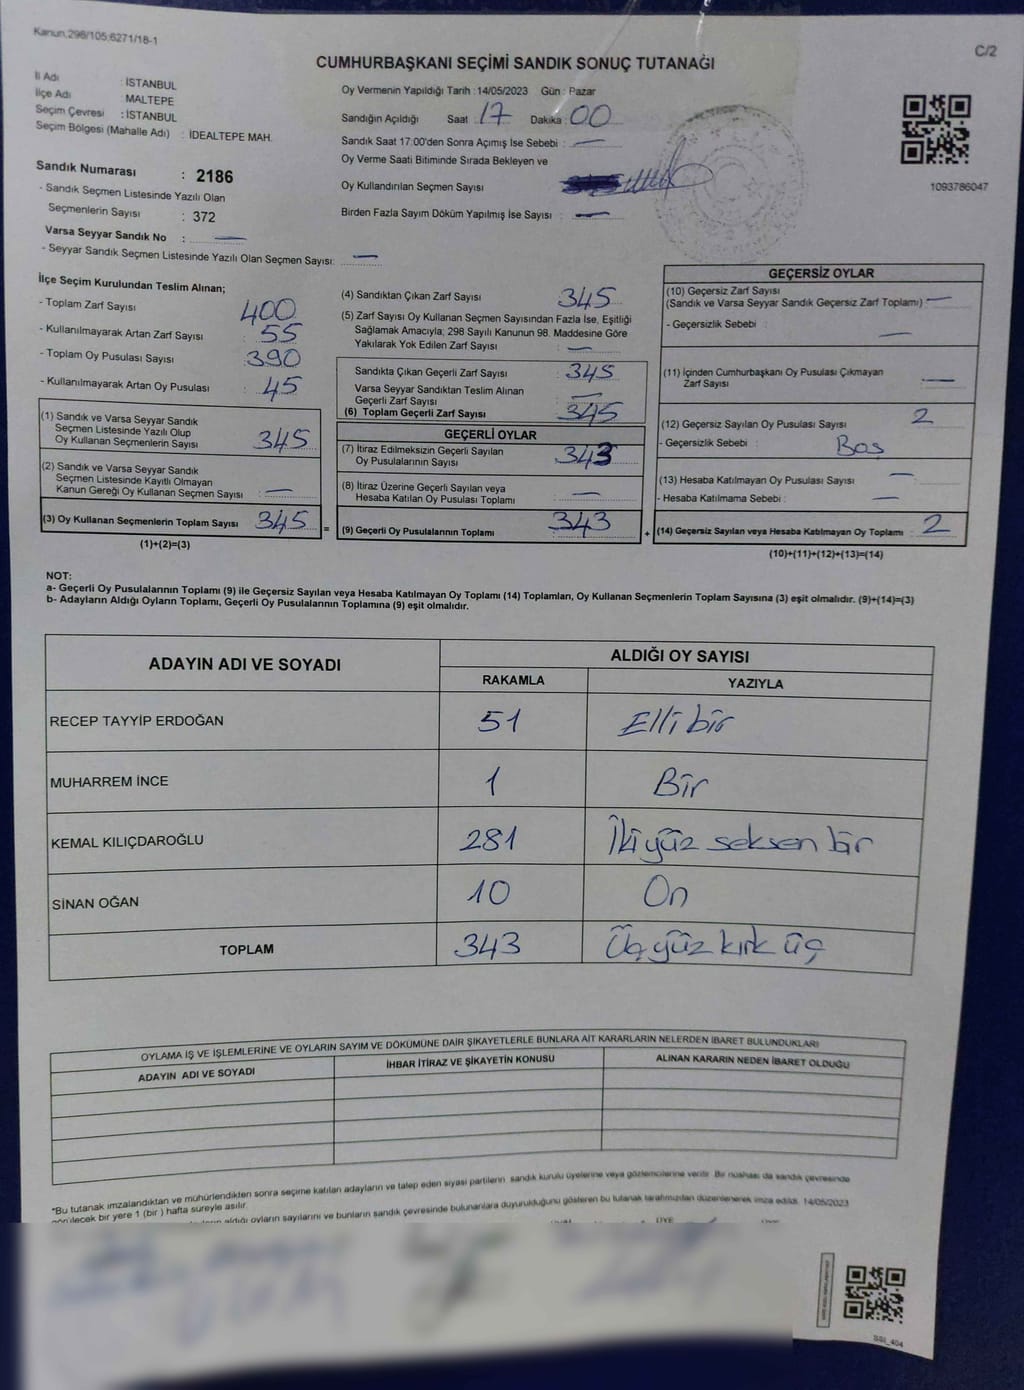 Kanun.298/105:6271/18-1
C/2
CUMHURBAŞKANI SEÇİMİ SANDIK SONUÇ TUTANAĞI
İl Adı : İSTANBUL
İlçe Adı : MALTEPE
Seçim Çevresi : İSTANBUL
Seçim Bölgesi (Mahalle Adı) : İDEALTEPE MAH.
Sandık Numarası : 2186
- Sandık Seçmen Listesinde Yazılı Olan
Seçmenlerin Sayısı : 372
Varsa Seyyar Sandık No : —
- Seyyar Sandık Seçmen Listesinde Yazılı Olan Seçmen Sayısı: —
Oy Vermenin Yapıldığı Tarih : 14/05/2023 Gün : Pazar
Sandığın Açıldığı Saat : 17 Dakika : 00
Sandık Saat 17:00'den Sonra Açımış İse Sebebi : —
Oy Verme Saati Bitiminde Sırada Bekleyen ve
Oy Kullandırılan Seçmen Sayısı
Birden Fazla Sayım Döküm Yapılmış İse Sayısı : —
1093786047
İlçe Seçim Kurulundan Teslim Alınan;
- Toplam Zarf Sayısı : 400
- Kullanılmayarak Artan Zarf Sayısı : 55
- Toplam Oy Pusulası Sayısı : 390
- Kullanılmayarak Artan Oy Pusulası : 45
(1) Sandık ve Varsa Seyyar Sandık
Seçmen Listesinde Yazılı Olup
Oy Kullanan Seçmenlerin Sayısı : 345
(2) Sandık ve Varsa Seyyar Sandık
Seçmen Listesinde Kayıtlı Olmayan
Kanun Gereği Oy Kullanan Seçmen Sayısı : —
(3) Oy Kullanan Seçmenlerin Toplam Sayısı : 345
(1)+(2)=(3)
=
(4) Sandıktan Çıkan Zarf Sayısı : 345
(5) Zarf Sayısı Oy Kullanan Seçmen Sayısından Fazla İse, Eşitliği
Sağlamak Amacıyla; 298 Sayılı Kanunun 98. Maddesine Göre
Yakılarak Yok Edilen Zarf Sayısı : —
Sandıkta Çıkan Geçerli Zarf Sayısı : 345
Varsa Seyyar Sandıktan Teslim Alınan
Geçerli Zarf Sayısı : —
(6) Toplam Geçerli Zarf Sayısı : 345
GEÇERLİ OYLAR
(7) İtiraz Edilmeksizin Geçerli Sayılan
Oy Pusulalarının Sayısı : 343
(8) İtiraz Üzerine Geçerli Sayılan veya
Hesaba Katılan Oy Pusulası Toplamı : —
(9) Geçerli Oy Pusulalarının Toplamı : 343
+
GEÇERSİZ OYLAR
(10) Geçersiz Zarf Sayısı
(Sandık ve Varsa Seyyar Sandık Geçersiz Zarf Toplamı) : —
- Geçersizlik Sebebi : —
(11) İçinden Cumhurbaşkanı Oy Pusulası Çıkmayan
Zarf Sayısı : —
(12) Geçersiz Sayılan Oy Pusulası Sayısı : 2
- Geçersizlik Sebebi : Boş
(13) Hesaba Katılmayan Oy Pusulası Sayısı : —
- Hesaba Katılmama Sebebi : —
(14) Geçersiz Sayılan veya Hesaba Katılmayan Oy Toplamı : 2
(10)+(11)+(12)+(13)=(14)
NOT:
a- Geçerli Oy Pusulalarının Toplamı (9) ile Geçersiz Sayılan veya Hesaba Katılmayan Oy Toplamı (14) Toplamları, Oy Kullanan Seçmenlerin Toplam Sayısına (3) eşit olmalıdır. (9)+(14)=(3)
b- Adayların Aldığı Oyların Toplamı, Geçerli Oy Pusulalarının Toplamına (9) eşit olmalıdır.
ADAYIN ADI VE SOYADI
ALDIĞI OY SAYISI
RAKAMLA YAZIYLA
RECEP TAYYİP ERDOĞAN 51 Elli bir
MUHARREM İNCE 1 Bir
KEMAL KILIÇDAROĞLU 281 İki yüz seksen bir
SİNAN OĞAN 10 On
TOPLAM 343 Üç yüz kırk üç
OYLAMA İŞ VE İŞLEMLERİNE VE OYLARIN SAYIM VE DÖKÜMÜNE DAİR ŞİKAYETLERLE BUNLARA AİT KARARLARIN NELERDEN İBARET BULUNDUKLARI
ADAYIN ADI VE SOYADI İHBAR İTİRAZ VE ŞİKAYETİN KONUSU ALINAN KARARIN NEDEN İBARET OLDUĞU
*Bu tutanak imzalandıktan ve mühürlendikten sonra seçime katılan adayların ve talep eden siyasi partilerin sandık kurulu üyelerine veya gözlemcilerine verilir. Bir nüshası da sandık çevresinde
görülecek bir yere 1 (bir) hafta süreyle asılır.
aldığı oyların sayılarını ve bunların sandık çevresinde bulunanlara duyurulduğunu gösteren bu tutanak tarafımızdan düzenlenerek imza edildi. 14/05/2023
ÜYE
SSI_404